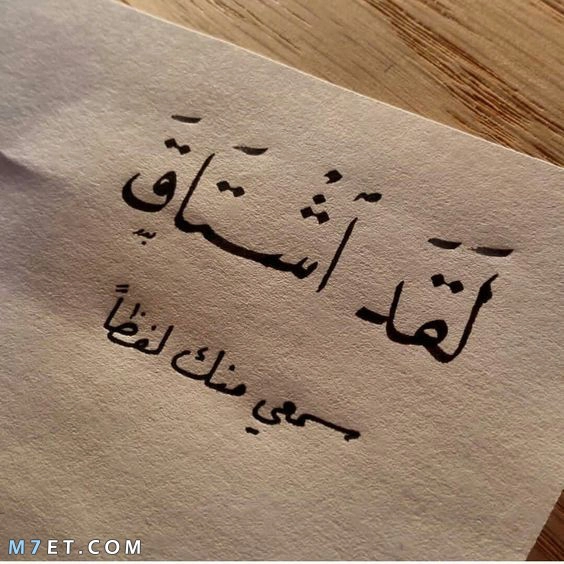 لَقَد اشْتَاقَ
سمعي منك لفظاً
M7ET.COM